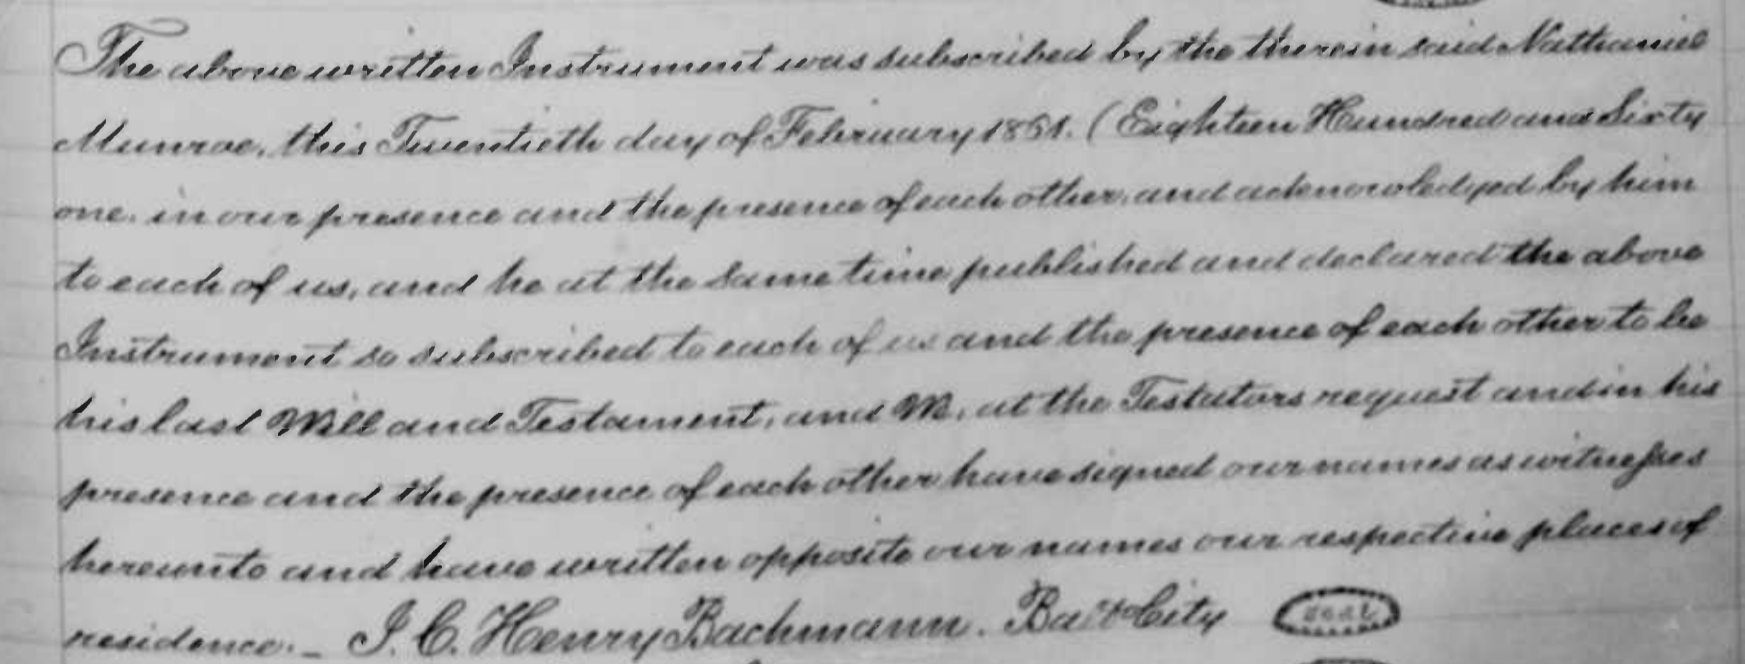 The above written Instrument was subscribed by the therein said Nathaniel
Munroe, this Twentieth day of February 1861. (Eighteen Hundred and Sixty
one. in our presence and the presence of each other, and acknowledged by him
to each of us, and he at the same time published and declared the above
Instrument so subscribed to each of us and the presence of each other to be
his last Will and Testament, and We, at the Testators request and in his
presence and the presence of each other have signed our names as witnesses
hereunto and have written opposite our names our respective places of
residence. _ J. C. Henry Bachmann. Balt City